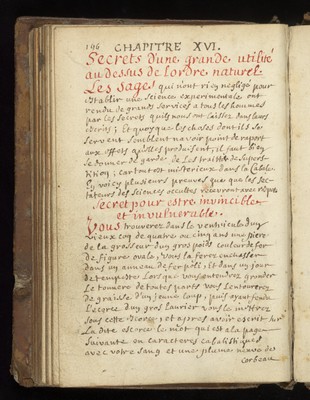 196 CHAPITRE XVI.
Secrets d'une grande utilité
au dessus de l'ordre naturel.
Les sages qui n'ont rien negligé pour
établir une science experimentale ont
rendu de grands services a tous les hommes
par les secrets qu'ils nous ont laissez dans leurs
écrits; Et quoyque les choses dont ils se
servent semblent n'avoir point de raport
aux effets qu'elles produisent; il faut bien
se donner de garde de Les traitter de Supers-
tition; car tout est misterieux dans la Cabale.
En voicy plusieurs preuves que les Sec-
tateurs des sciences occultes recevront avec
Secret pour estre invincible
et invulnerable.
Vous trouverez dans le ventricule d'un
vieux coq de quatre ou cinq ans une pierre
de la grosseur d'un gros pois couleur de fer
de figure ovale, vous la ferez enchasser
dans un anneau de fer poli, Et dans un jour
de tempeste Lorsque vous entendrez gronder
Le tonnere de toutes parts vous l'entourerez
de graisse d'un jeune loup, puis ayant fendu
L'écorce d'un gros laurier vous le mettrez
sous cette écorce, et apres avoir escrit sur
La dite escorce le mot qui est a la page
suivante en caracteres cabalistiques
avec votre sang et une plume neuve de
corbeau